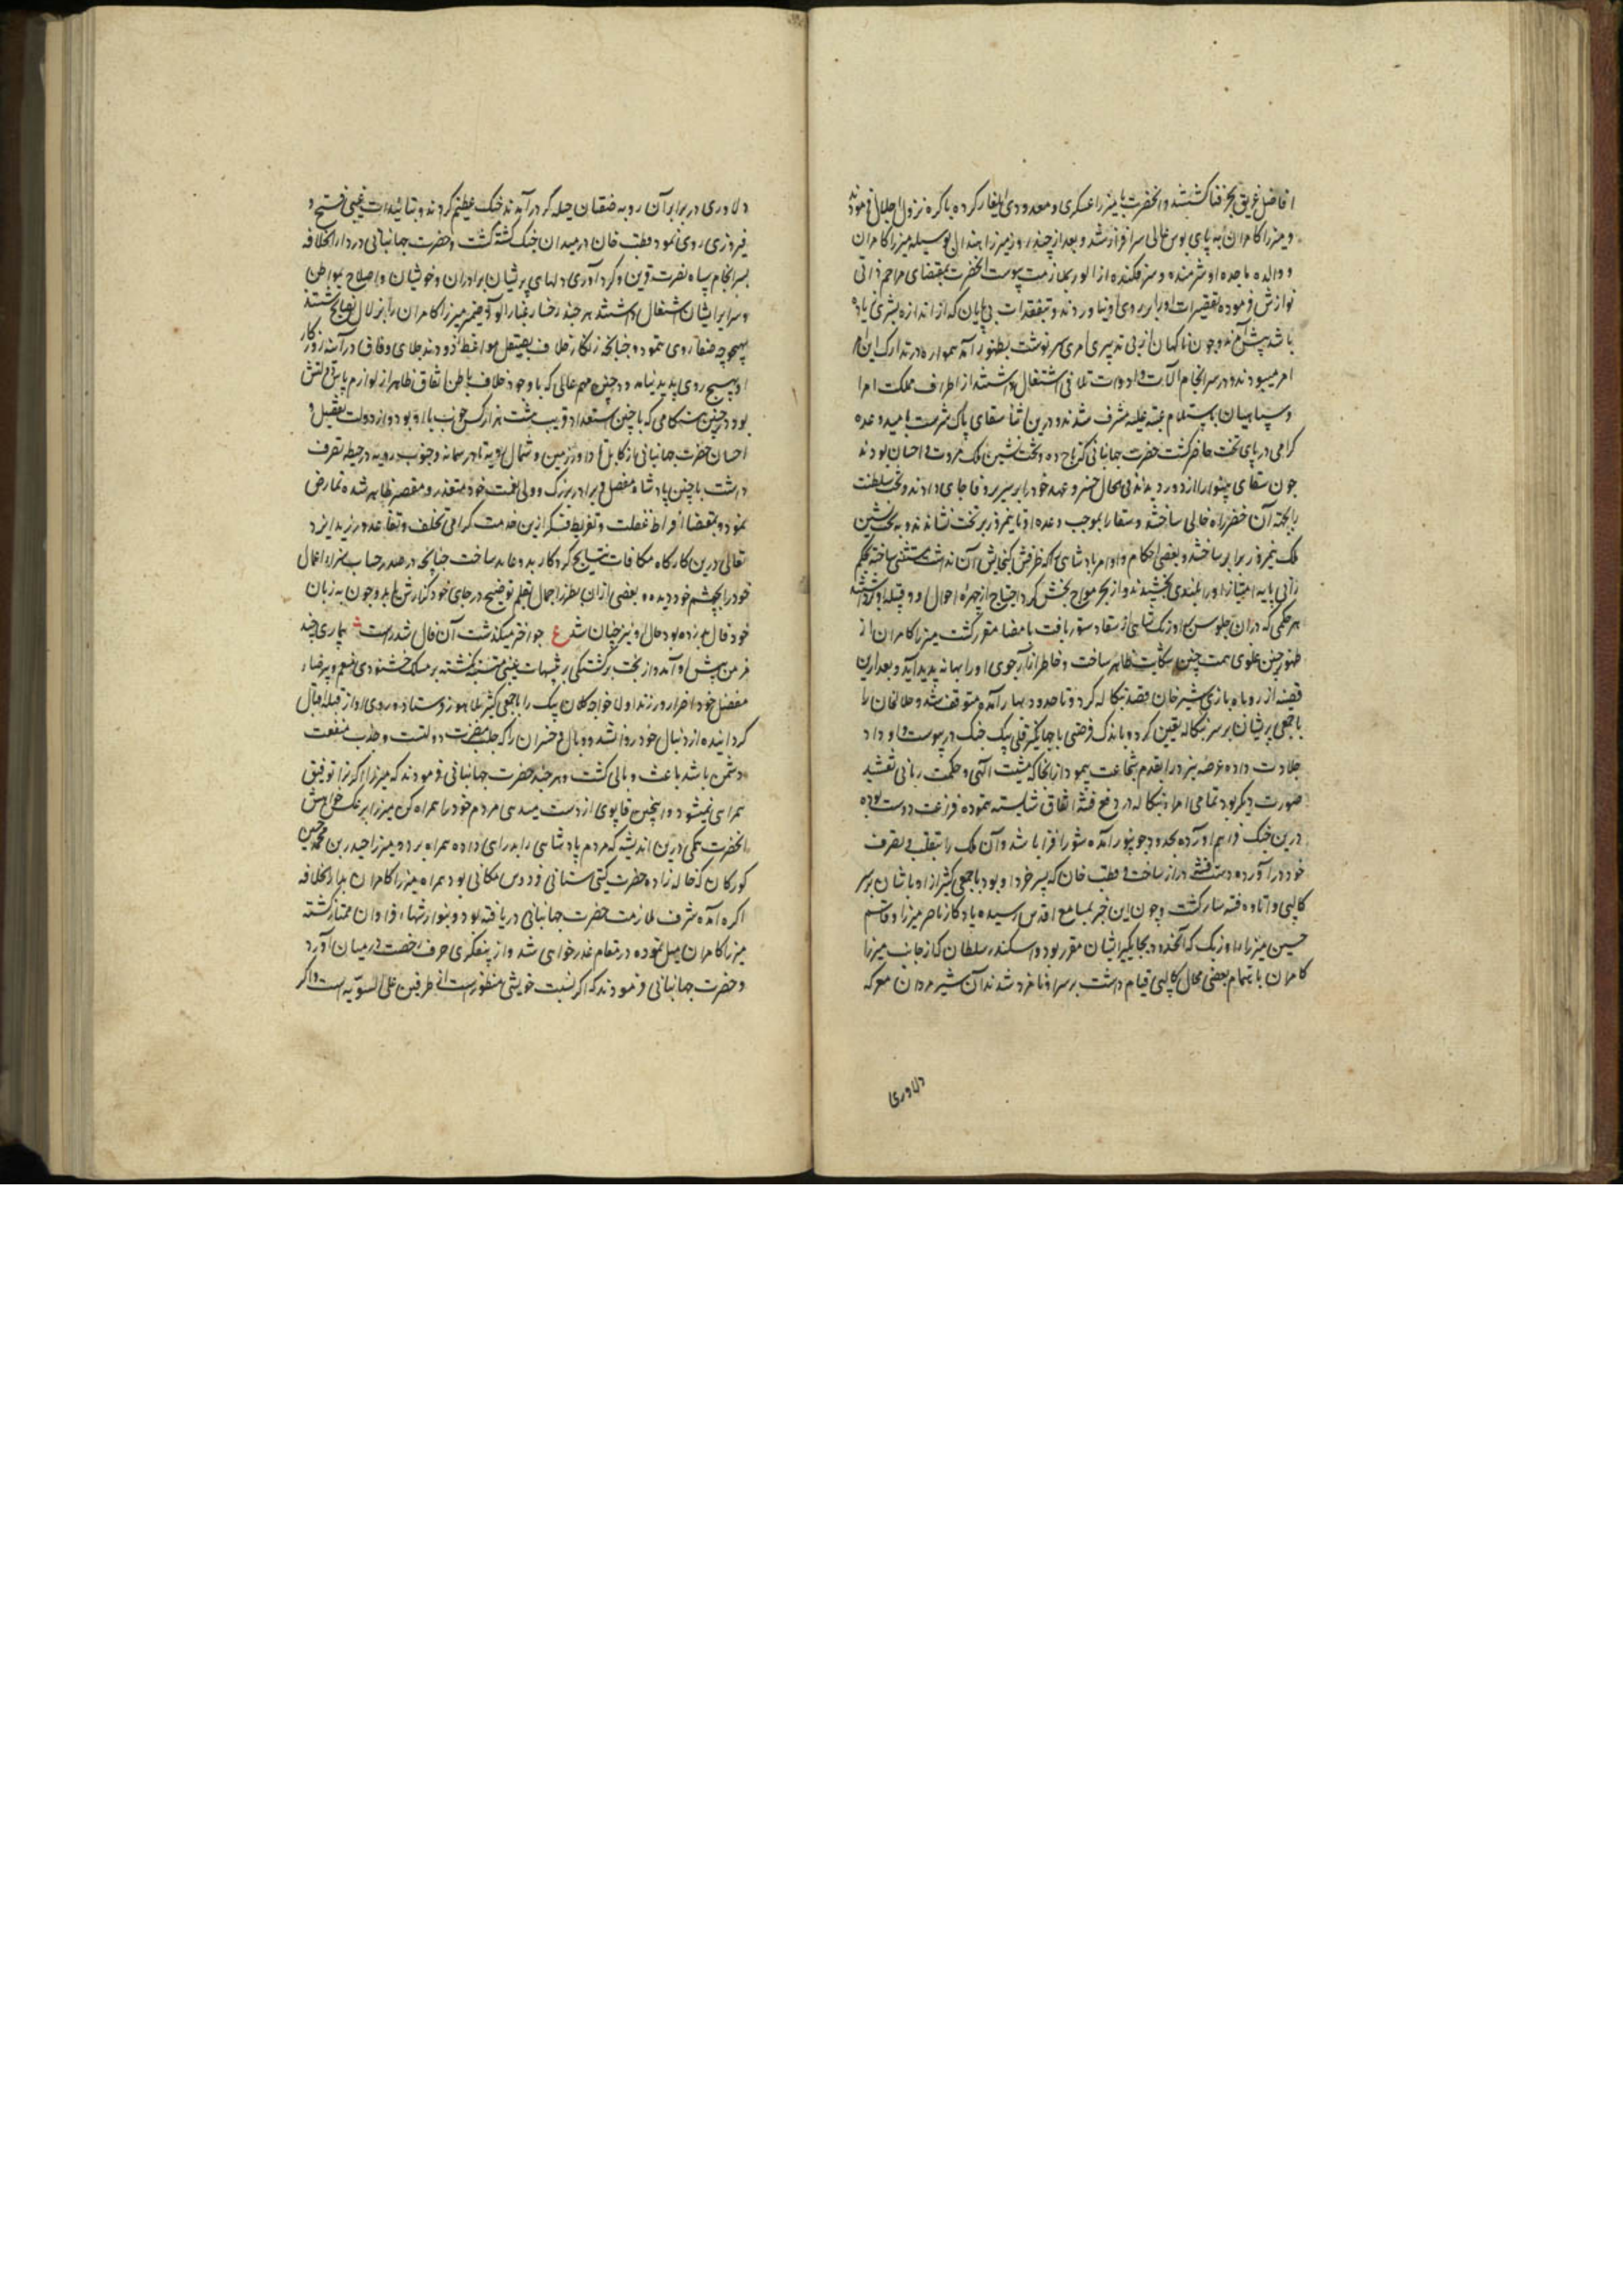 افاضل غریق بحر فنا کشتند و انحضرت با میرزا عسکری و معدودی ایلغار کرده باکره نزول اجلال فرمودند
و میرزا کامران به پای بوس عالی سرافراز شد و بعد از چند روز میرزا هندال بوسیله میرزا کامران
و والده ماجده او شرمنده و سرفکنده از الور بملازمت پیوست انحضرت بمقتضای مراحم ذاتی
نوازش فرموده تقصیرات او را بر روی او نیاوردند و بتفقدات بی پایان که از اندازه بشری زیاده
باشد پیش آمدند و چون ناکهان از بی تدبیری امری سرنوشت بظهور آمد همواره در تدارک این
امر میبودند و در سرانجام آلات و ادوات تلافی اشتغال داشتند از اطراف مملکت امرا
و سپاهیان باستلام عتبه علیه مشرف شدند و درین اثنا سقای پاک سرشت بامید وعده
کرامی در پای تخت حاضر کشت حضرت جهانبانی که تاج ده و تخت نشین ملک مروت و احسان بودند
چون سقای بینوا را از دور دیدند فی الحال خسرو عهد خود را بر سریر وفا جای دادند و تخت سلطنت
را بجهته آن خضر راه خالی ساختند و سقا را بموجب وعده او تا نیمروز بر تخت نشاندند و به تخت نشین
ملک نیمروز برابر ساختند و بعضی احکام و اوامر پادشاهی که ظرفش کنجایش آن نداشت مستثنی ساخته بحکم
رانی پایه امتیاز او را بلندی بخشیدند و از بحر مواج بخشش کرد احتیاج از چهره احوال او و قبیله او
هر حکمی که در ان جلوس بر اورنک شاهی از سقا دستور یافت بامضا مقرر کشت میرزا کامران از
ظهور چنین علوی همت چین شکایت ظاهر ساخت و خاطر ازارجوی او را بهانه پدید آید و بعد از ین
قضیه از روباه بازی شیرخان قصد بنکاله کرد و تا حدود بهار آمده متوقف شد و جلال خان را
با جمعی پریشان بر سر بنکاله تعین کرد و باندک فرصتی با جهانکیر قلی بیک جنک در پیوست و او داد
جلادت داده عرصه نبرد را بقدم شجاعت پیمود از انجا که مشیت الهی و حکمت ربانی نقشبند
صورت دیکر بود تمامی امراء بنکاله در دفع فتنه اتفاق شایسته ننموده فراغت دوست بوده
درین جنک فراهم آورده بحدود جونپور آمده شور افزا باشد و آن ملک را بتغلب بتصرف
خود در آورده دست فتنه دراز ساخت و قطب خان که پسر خرد او بود با جمعی کثیر از اوباشان بر سر
کالپی و اتاوه فتنه ساز کشت و چون این خبر بمسامع اقدس رسید یادکار ناصر میرزا و قاسم
حسین میرزا و اوزبک که آنحدود بجایکیر ایشان مقرر بود و اسکندر سلطان که از جانب میرزا
کامران باهتمام بعضی محال کالپی قیام داشت بر سر او نامزد شدند آن شیر مردان معرکه
دلاوری
دلاوری در برابر آن روبه صفقان حیله کر در آمدند جنک عظیم کردند و بتائیدات غیبی فتح و
فیروزی روی نمود قطب خان در میدان جنک کشته کشت و حضرت جهانبانی در دار الخلافه
بسرانجام سپاه نصرت قرین و کرد آوری دلهای پریشان برادران و خویشان و اصلاح بواطن
و سرایر ایشان اشتغال داشتند هر چند رخسار غبار آلود ضمیر میرزا کامران را بزلال نصایح شستند
بهیچ وجه صفا روی ننمود و چنانچه زنکار خلاف بصیقل مواعظ زدودند جلای وفاق در آینه روزکار
او بهیچ روی پدید نیامد در چنین مهم عالی که با وجود خلاف باطن اتفاق ظاهر از لوازم پاس دولتش
بود در چنین هنکامی که با چنین استعداد قریب بیست هزار کس خوب با او بود و از دولت تفضل و
احسان حضرت جهانبانی از کابل تا داور زمین و شمال رویه تا در سمانه و جنوب رویه در حیطه تصرف
داشت با چنین پادشاه مفضل و برادر بزرک و ولی نعمت خود متعذر و مقصر ظاهر شده تمارض
نمود و بمقتضاء افراط غفلت و تفریط فکر ازین خدمت کرامی تخلف و تقاعد ورزید ایزد
تعالی درین کارکاه مکافات نتیجه کردکار بدو عاید ساخت چنانچه در صدد حساب سزاء اعمال
خود را بچشم خود دیده و بعضی از ان بطرز اجمال بقلم توضیح در جای خود کذارش یابد و چون به زبان
خود فال بد زده بود حال او نیز چنان شد ع چو اختر میکذشت آن فال شد راست بیماری چند
مزمن پیش او آمد و از بخت برکشتکی بر تنبیهات غیبی متنبه نکشته بر مسلک خشنودی منعم و پیر رضاء
مفضل خود اصرار ورزند اولا خواجه کلان بیک را با جمعی کثیر بلاهور فرستاد و روی او از قبله اقبال
کردانیده از دنبال خود روانه شد و وبال و خسران را که جلب مضرت دولتست و جذب منفعت
دشمن باشد باعث و بانی کشت و هر چند حضرت جهانبانی فرمودند که میرزا اکر ترا توفیق
همراهی نمیشود و اینچنین قابوی از دست میدهی مردم خود را همراه کن میرزا بر عکس خواهش
انحضرت بمکی درین اندیشه که مردم پادشاهی را بد راهی داده همراه برد و میرزا حیدر بن محمد حسین
کورکان که خاله زاده حضرت کیتی ستانی فردوس مکانی بود همراه میرزا کامران بدار الخلافه
اکره آمده شرف ملازمت حضرت جهانبانی دریافته بود و بنوازشهاء فراوان ممتاز کشته
میرزا کامران میل نموده در مقام عذر خواهی شد و از پنفکری حرف رخصت در میان آورد
و حضرت جهانبانی فرمودند که اکر نسبت خویشی منظور است از طرفین علی السویه است و اکر